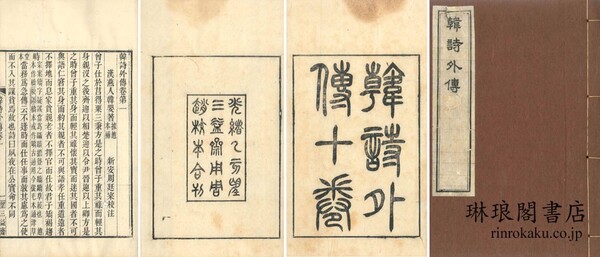 韓詩外傳
琳琅閣書店
rinrokaku.co.jp
韓詩外
傳十卷
光緒乙亥望
三益齋用周
趙校本合刊
韓詩外傳卷第一
漢燕人韓嬰著 新安周廷寀校注
曾子仕於莒得粟三秉方是之時曾子重其祿而輕其
身親沒之後齊迎以相楚迎以令尹晉迎以上卿方是
之時曾子重其身而輕其祿懷其寶而迷其國者不可
與語仁窘其身而約其親者不可與語孝任重道遠者
不擇地而息家貧親老者不擇官而仕故君子橋褐趨
時
當務為急傳云不逢時而仕任事而敦其慮為之使
而不入其謀貧焉故也詩曰夙夜在公實命不同